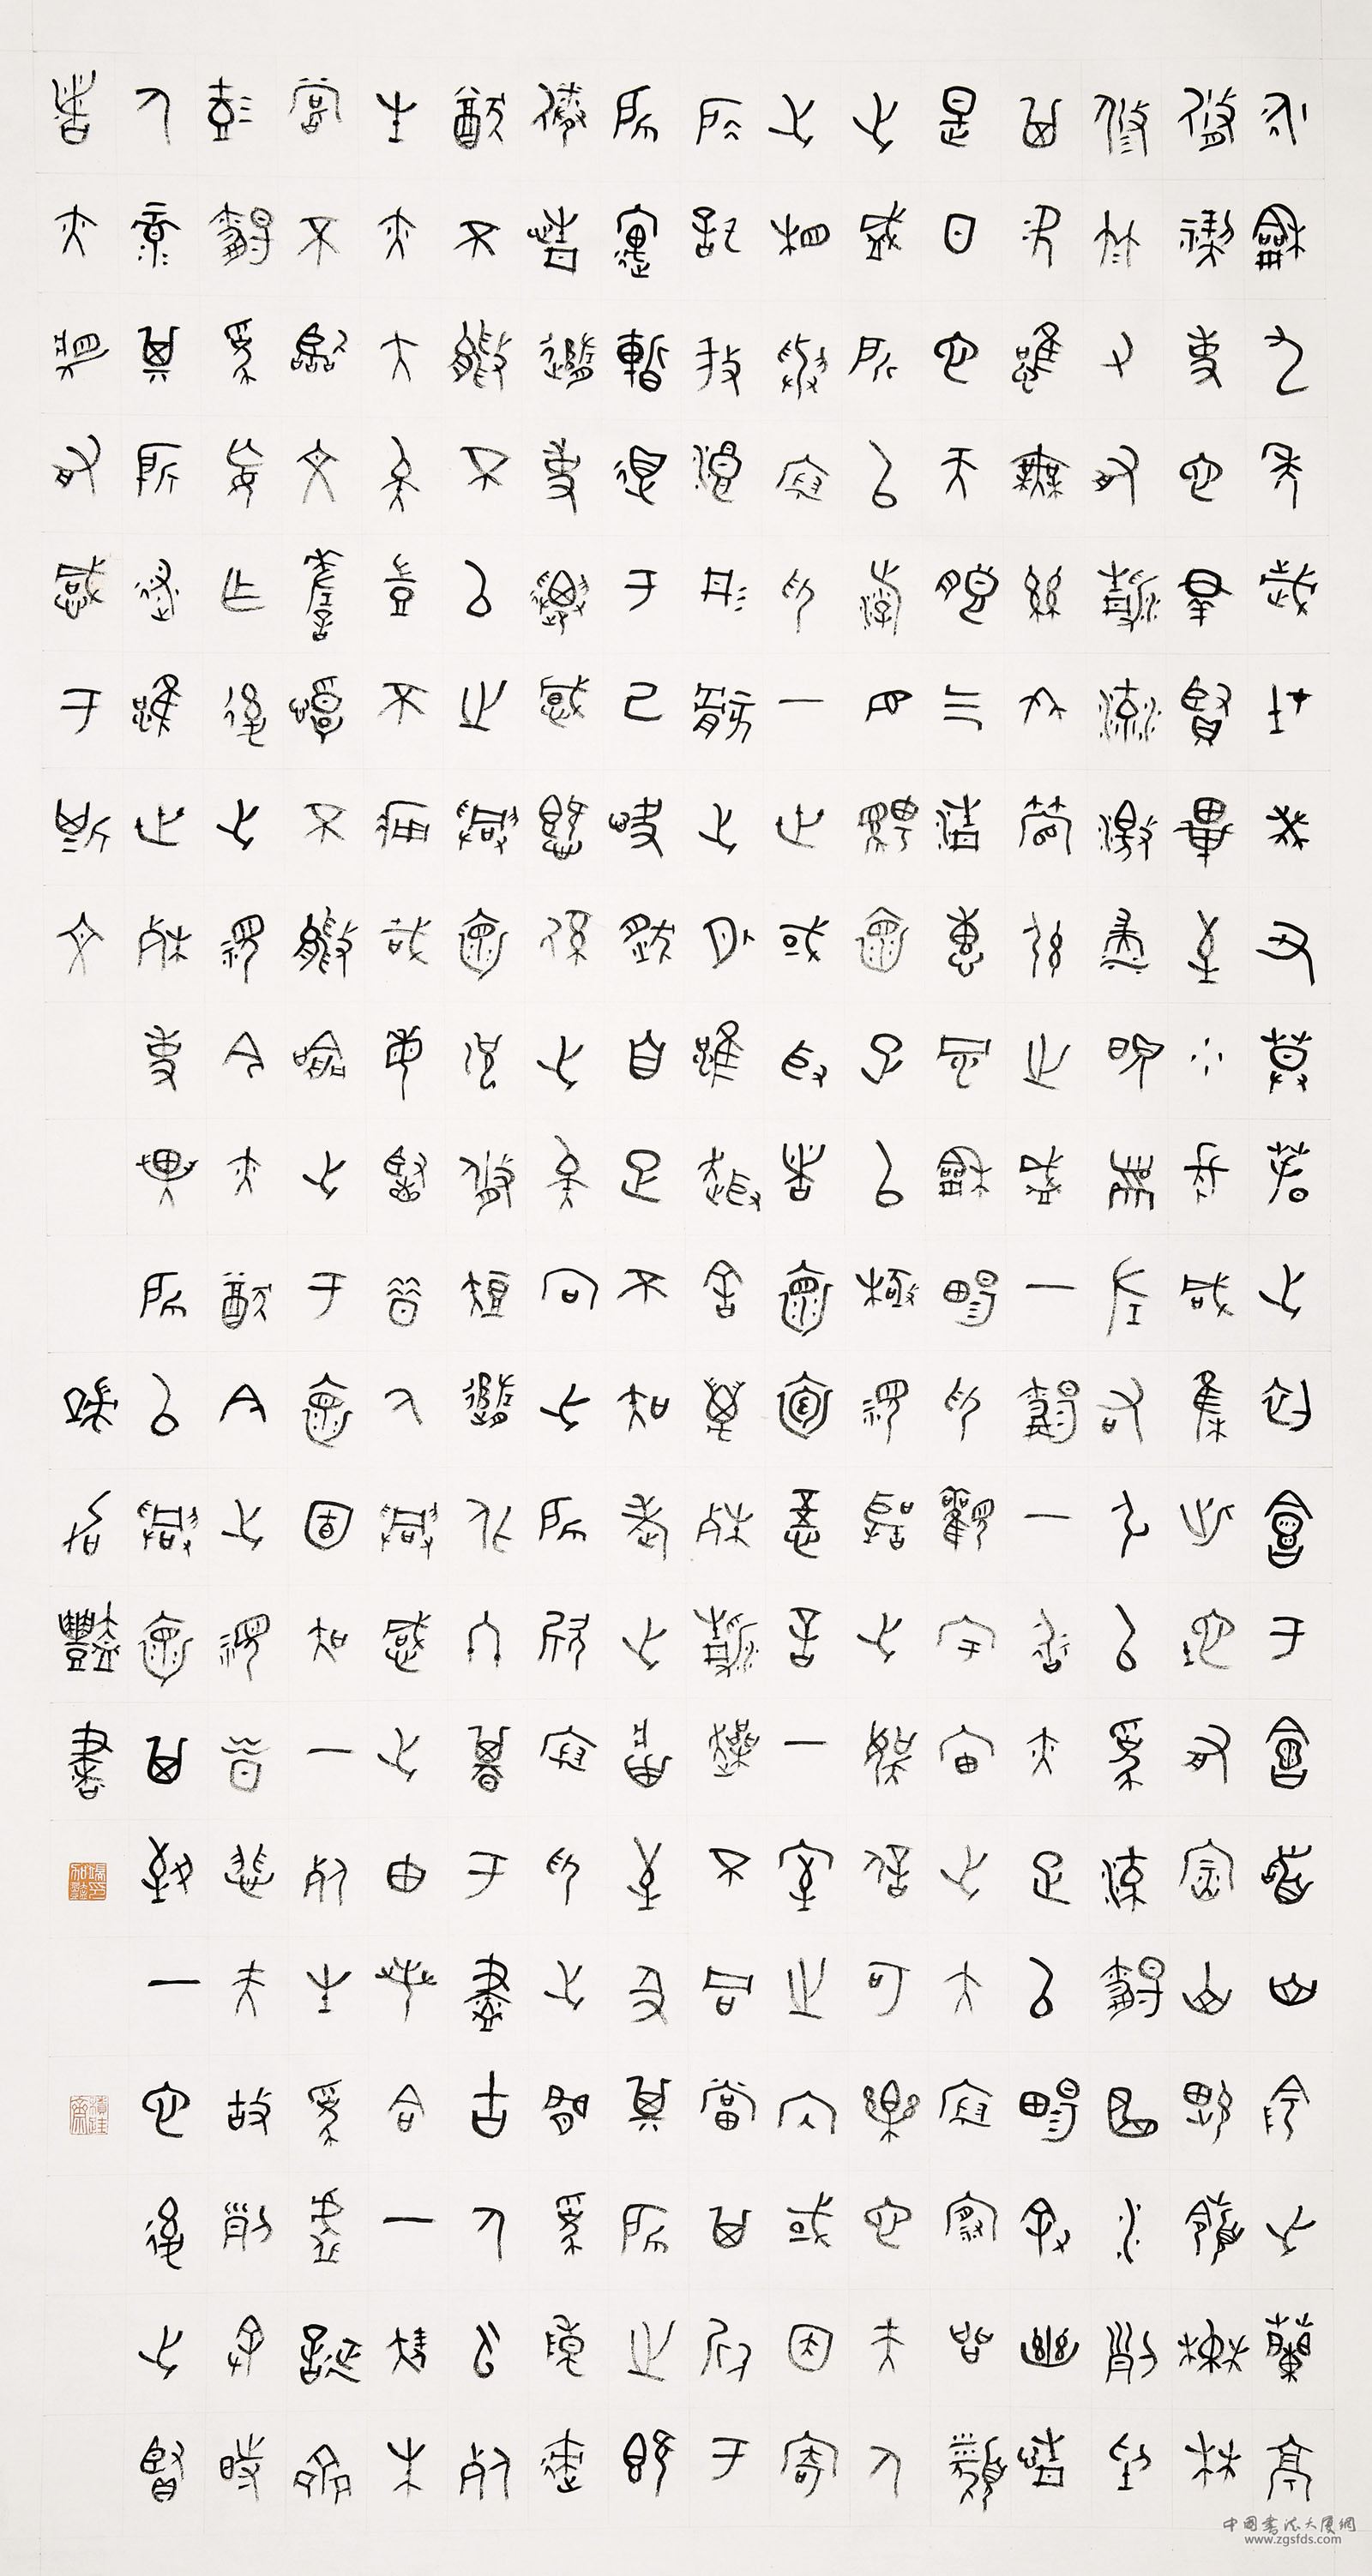 永和九年歲在癸丑暮春之初會于會稽山陰之蘭亭
脩禊事也羣賢畢至少長咸集此地有崇山峻領茂林
脩竹又有清流激湍暎帶左右引以為流觴曲水列坐
其次雖無絲竹管弦之盛一觴一詠亦足以暢敘幽情
是日也天朗氣清惠風和暢仰觀宇宙之大俯察品類
之盛所以遊目騁懷足以極視聽之娛信可樂也夫人
之相與俯仰一世或取諸懷抱悟言一室之內或因寄
所託放浪形骸之外雖趣舍萬殊靜躁不同當其欣於
所遇蹔得於己快然自足不知老之將至及其所之既
倦情隨事遷感慨係之矣向之所欣俛仰之間為陳迹
猶不能不以之興懷況脩短隨化終期於盡古人云死
生亦大矣豈不痛哉每攬昔人興感之由若合一契未
嘗不臨文嗟悼不能喻之於懷固知一死生為虛誕齊
彭殤為妄作後之視今亦猶今之視昔悲夫故列敘時
人錄其所述雖世殊事異所以興懷其致一也後之攬
者亦將有感於斯文
吳加豔書
中國書法大廈網
www.zgsfds.com